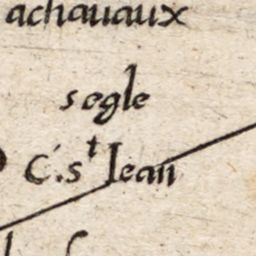 achauaux
segle
C. s^t Jean